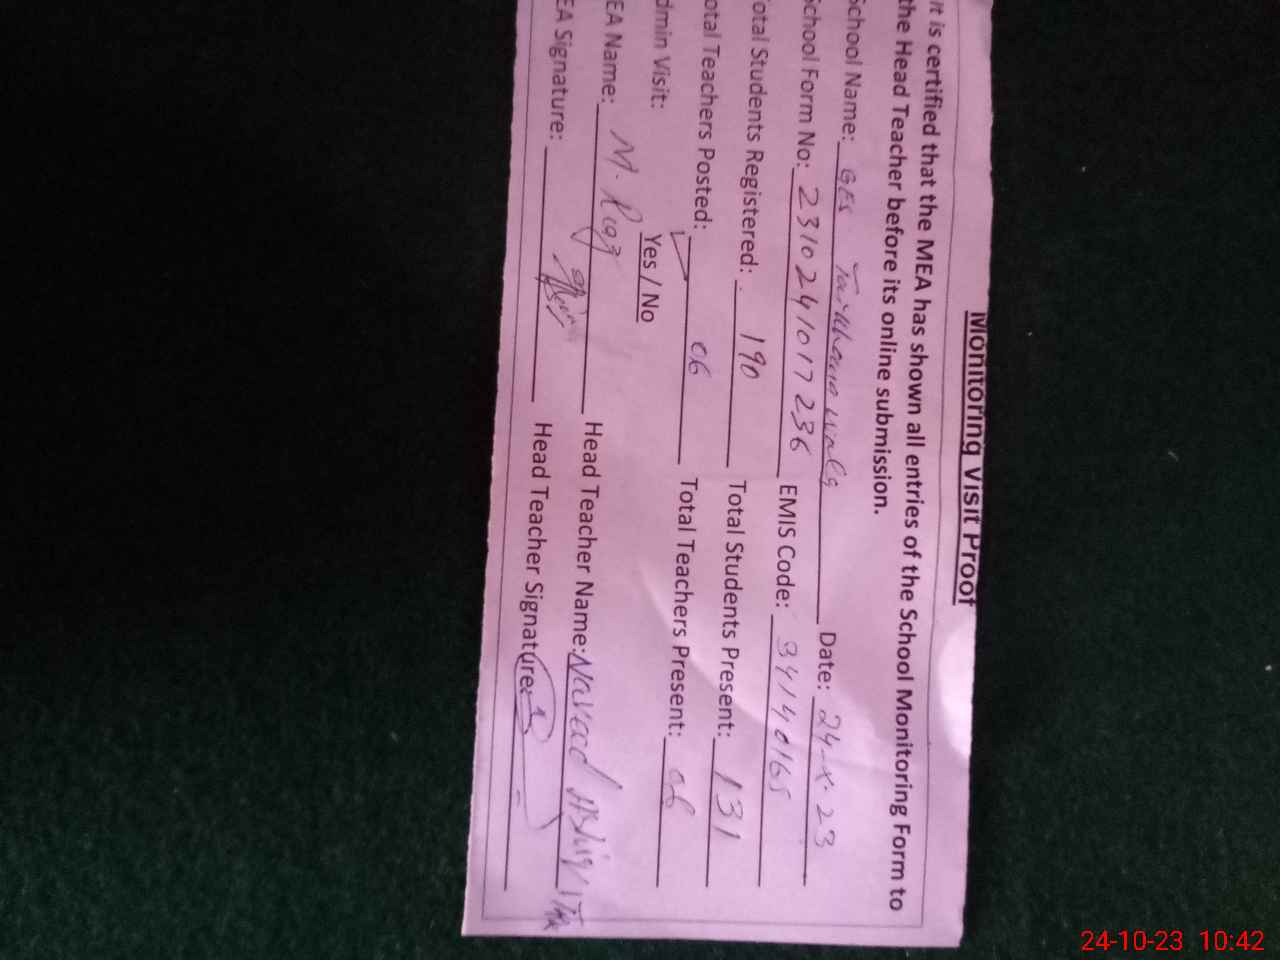 Monitoring Visit Proof
It is certified that the MEA has shown all entries of the School Monitoring Form to
the Head Teacher before its online submission.
School Name: GES Date: 24-X-23
School Form No: 2310241017236 EMIS Code: 34140165
Total Students Registered: 190 Total Students Present: 131
otal Teachers Posted: 06 Total Teachers Present: 06
dmin Visit: Yes / No
EA Name: M. Riaz Head Teacher Name: Naveed
EA Signature: Head Teacher Signature:
24-10-23 10:42